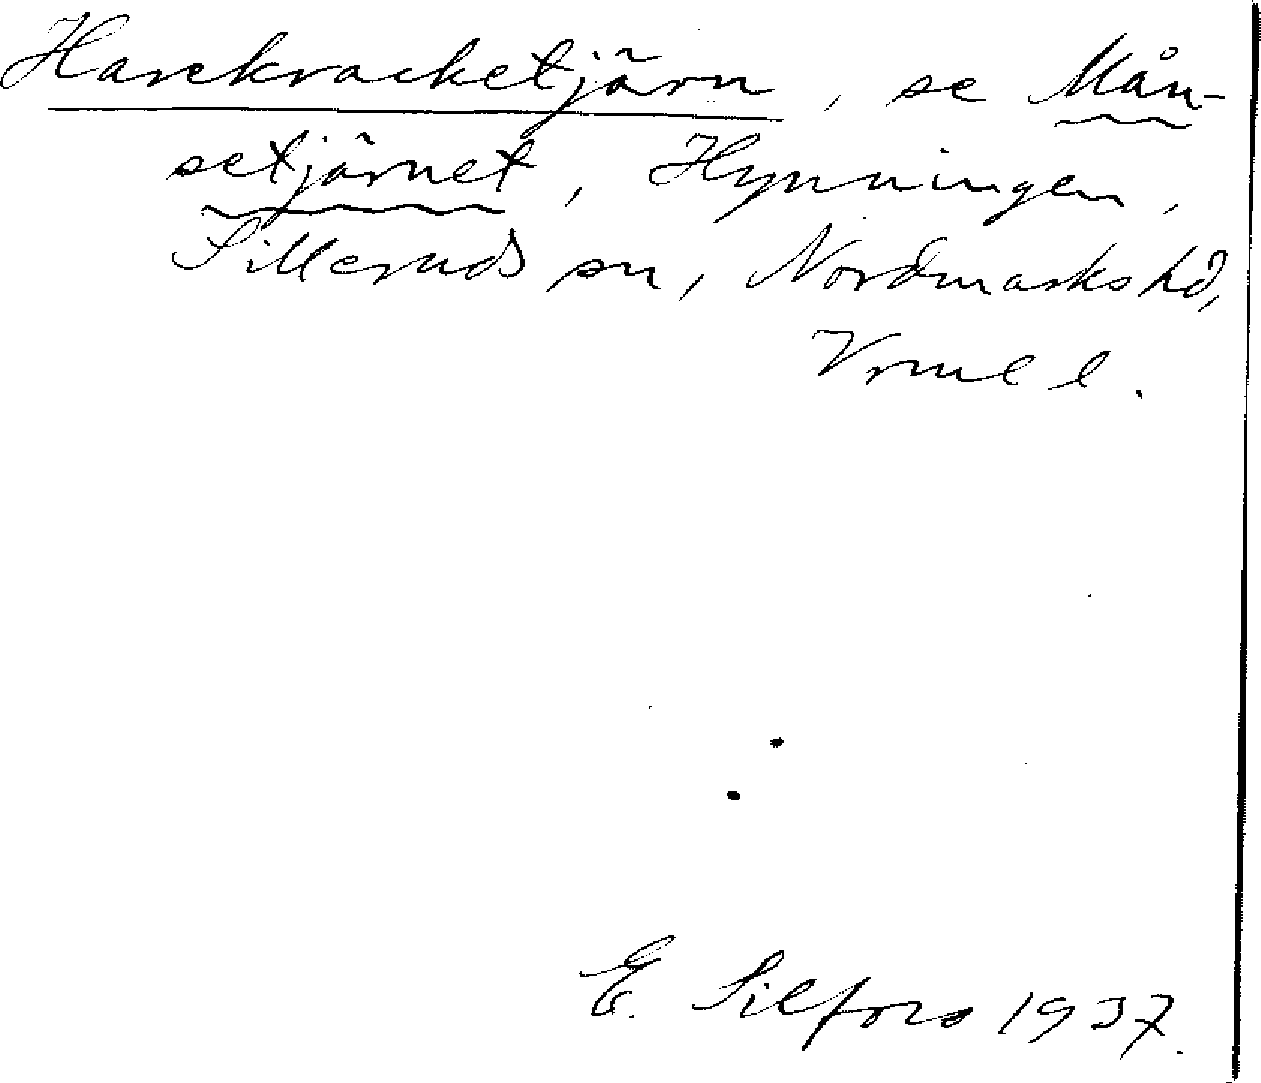 Harekracketjärn, se Mån-
setjärnet, Hynningen,
Silleruds sn, Nordmarks hd,
Vrml l.
E. Silfors 1937.